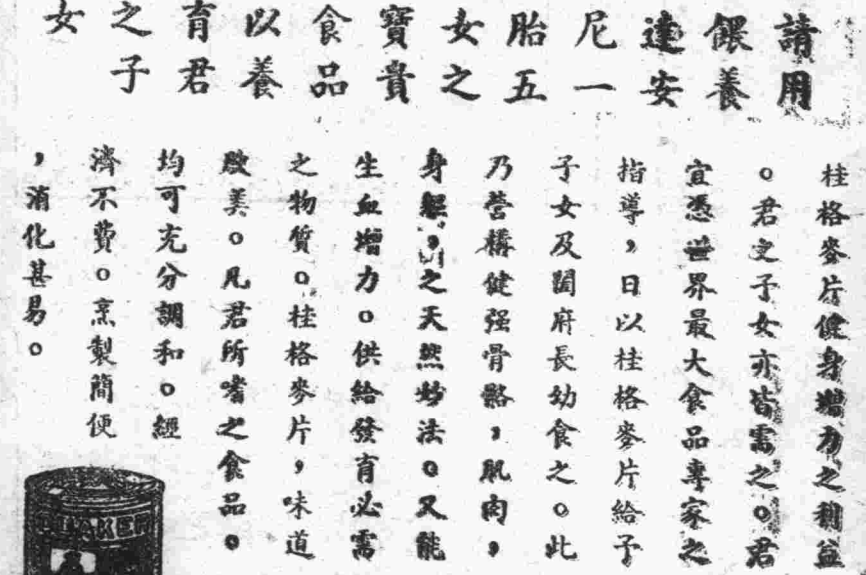 請用
餵養
達安
尼一
胎五
女之
寶貴
食品
以養
育君
之子
女
桂格麥片健身增力之利益
。君之子女亦皆需之。君
宜憑世界最大食品專家之
指導，日以桂格麥片給予
子女及闔府長幼食之。此
乃營構健强骨骼，肌肉，
身軀，之天然妙法。又能
生血增力。供給發育必需
之物質。桂格麥片，味道
殷美。凡君所嗜之食品。
均可充分調和。經
濟不費。烹製簡便
，消化甚易。
QUAKER